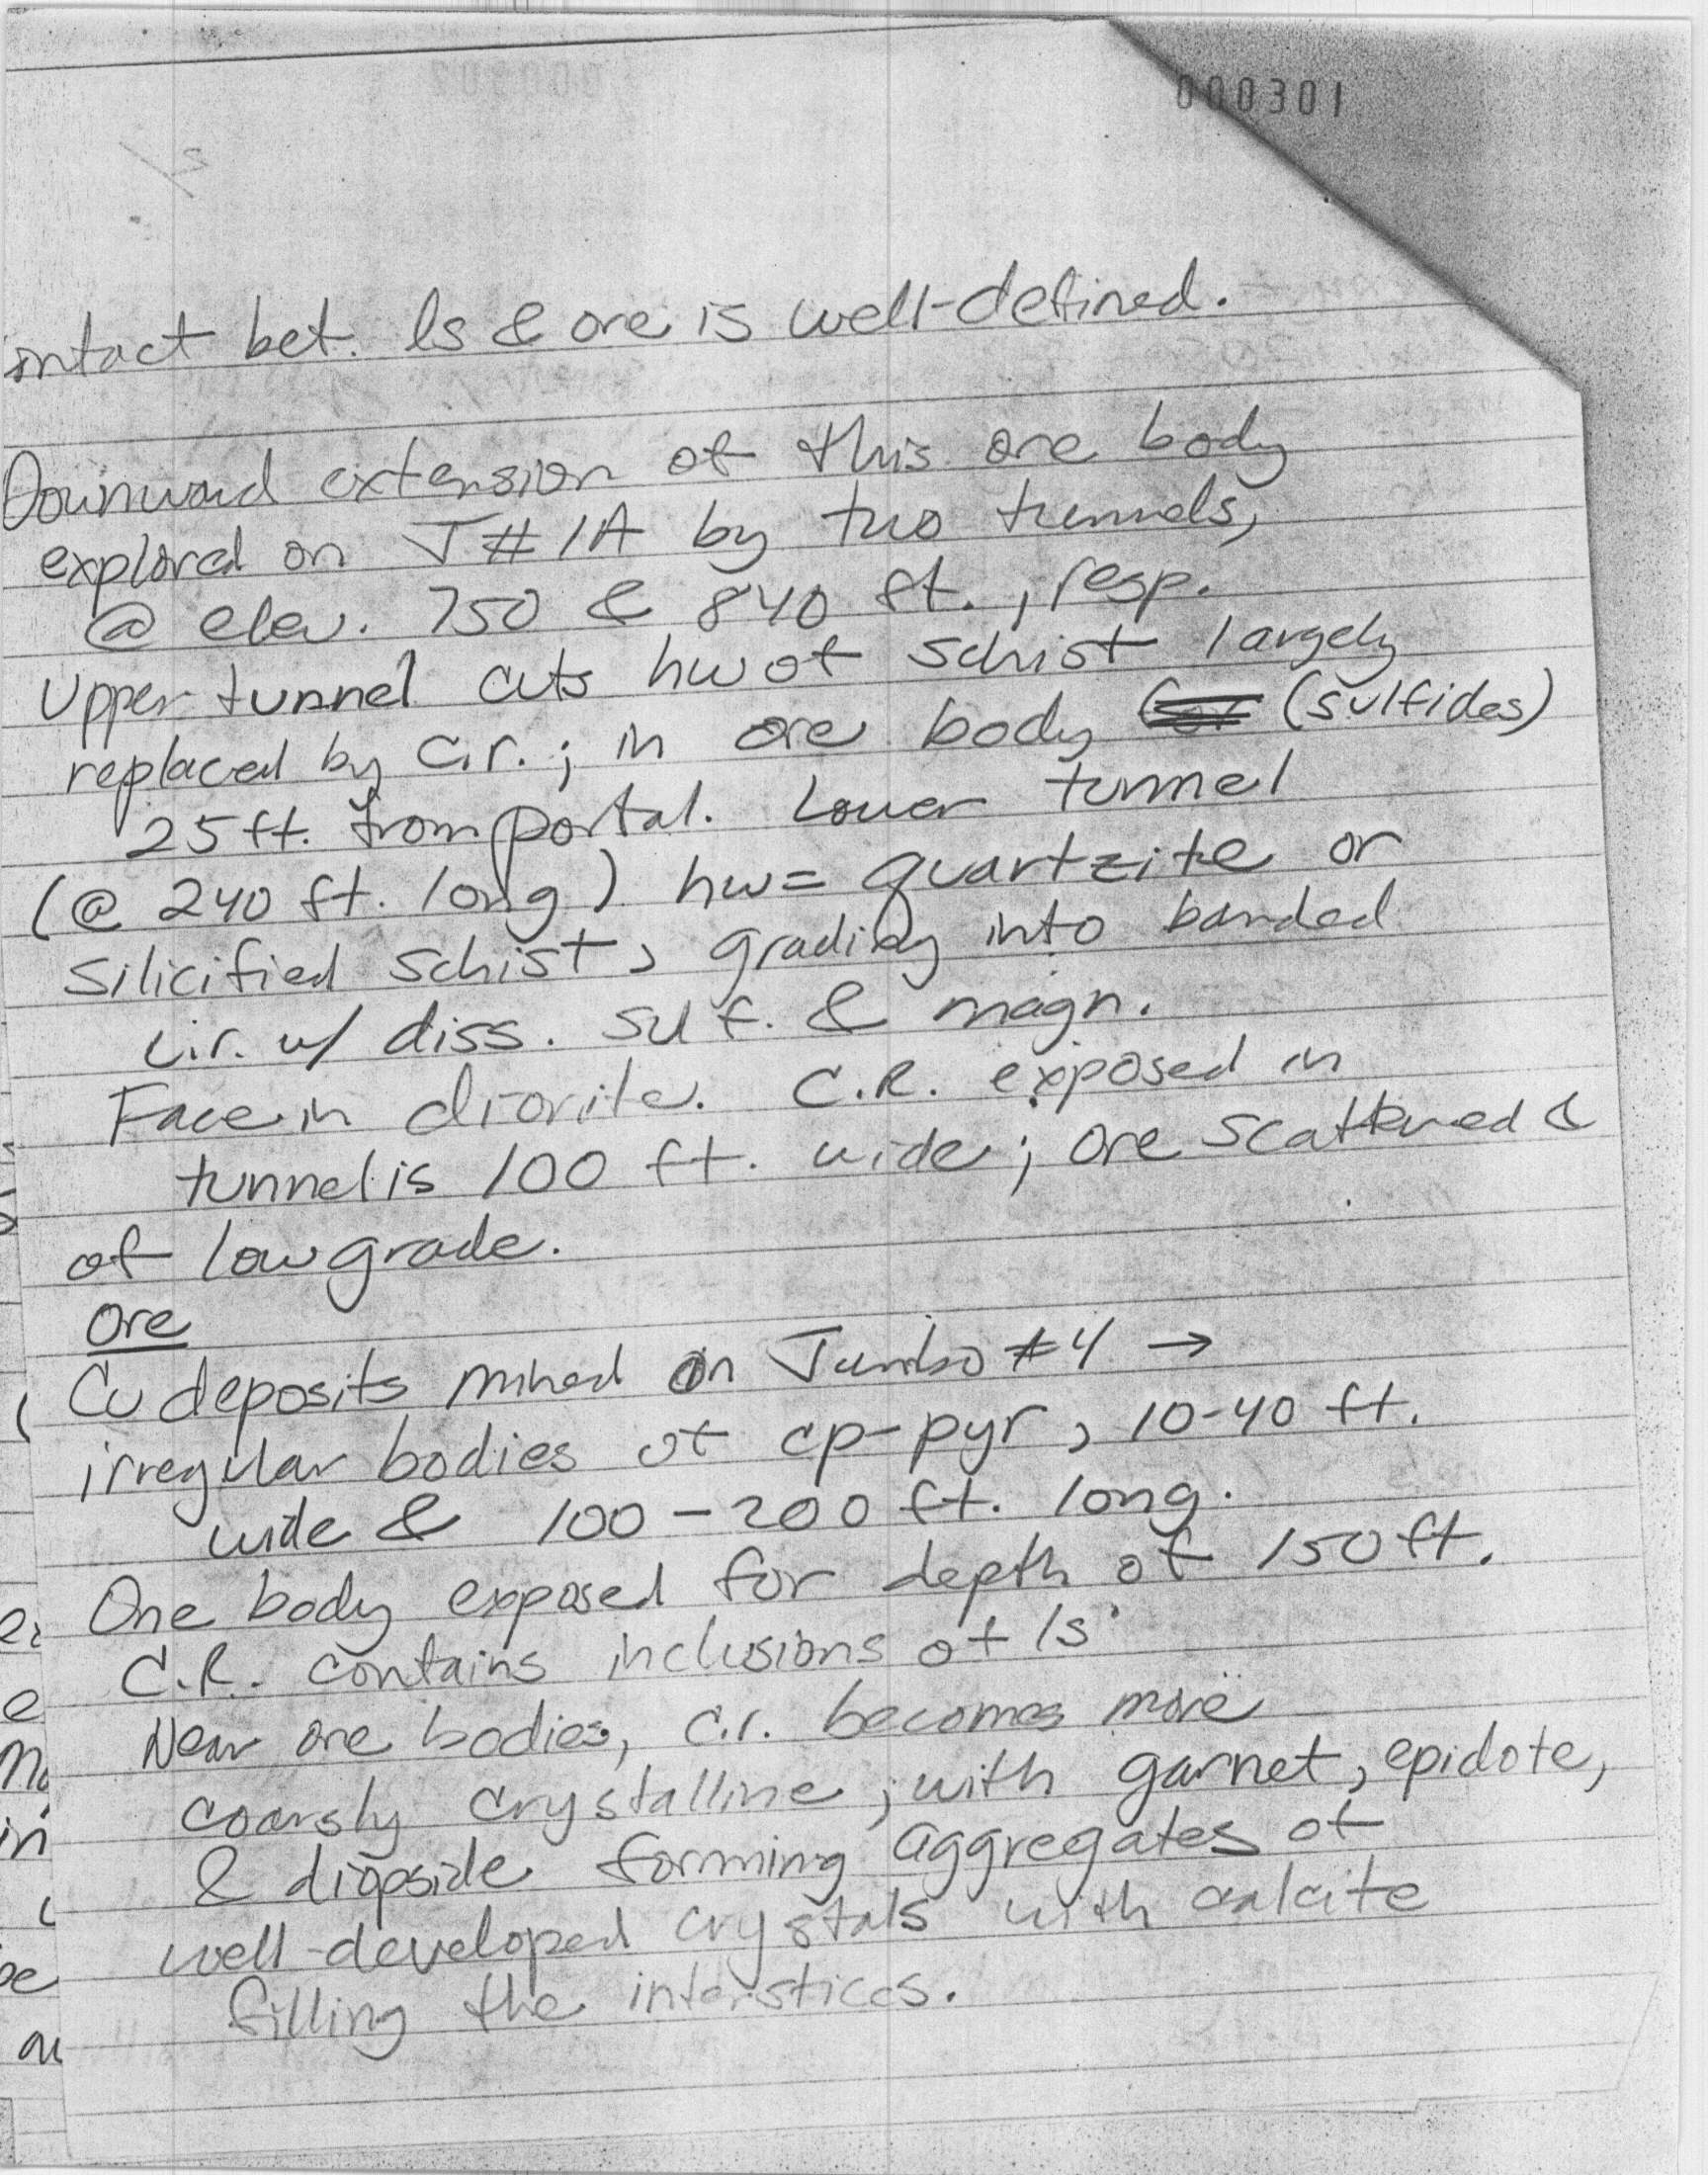 000301
ontact bet. ls & ore is well-defined.
Downward extension of this ore body
explored on J#1A by two tunnels,
@ elev. 750 & 840 ft., resp.
Upper tunnel cuts hw of schist largely
replaced by c.r.; in ore body (sulfides)
25 ft. from portal. Lower tunnel
(@ 240 ft. long) hw= quartzite or
silicified schist, grading into banded
c.r. w/ diss. sulf. & magn.
Face in diorite. C.R. exposed in
tunnel is 100 ft. wide; ore scattered &
of low grade.
Ore
Cu deposits mined on Jumbo #4 →
irregular bodies of cp-pyr, 10-40 ft.
wide & 100-200 ft. long.
One body exposed for depth of 150 ft.
C.R. contains inclusions of ls.
Near ore bodies, c.r. becomes more
coarsly crystalline, with garnet, epidote,
& diopside forming aggregates of
well-developed crystals with calcite
filling the interstices.